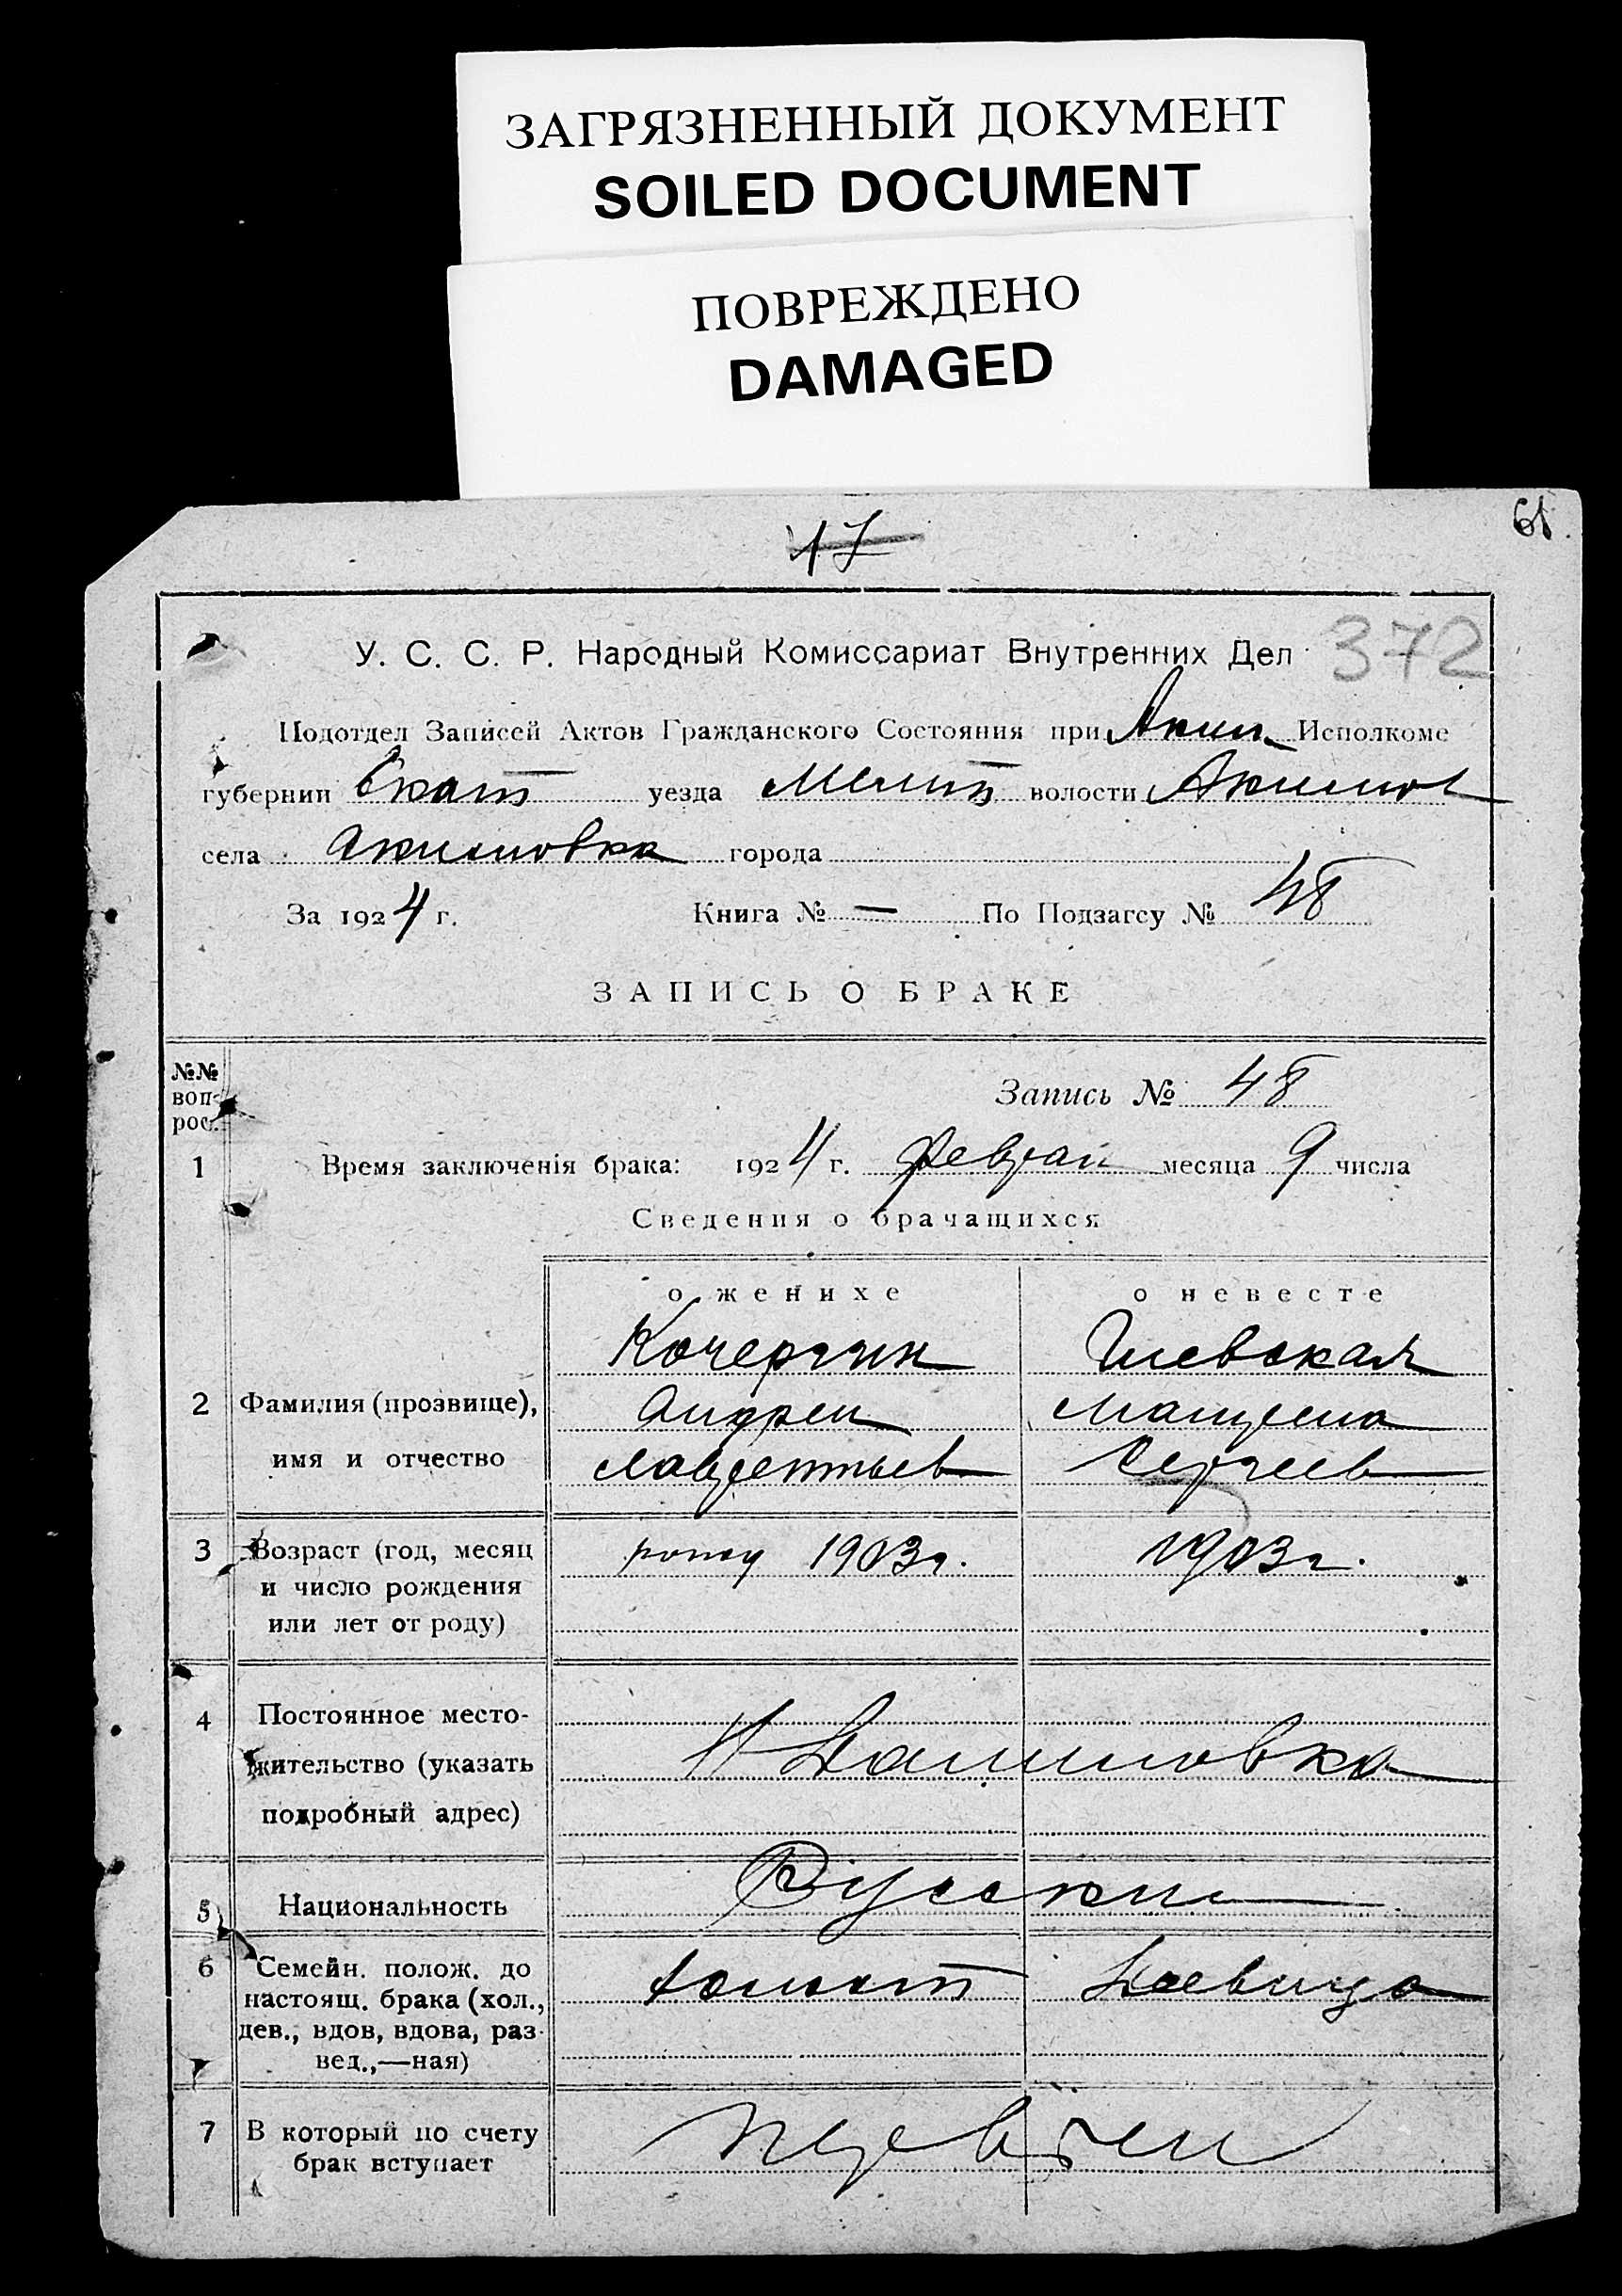 ЗАГРЯЗНЕННЫЙ ДОКУМЕНТ
SOILED DOCUMENT
ПОВРЕЖДЕНО
DAMAGED
61.
17
У. С. С. Р. Народный Комиссариат Внутренних Дел 372
Подотдел Записей Актов Гражданского Состояния при Аким. Исполкоме
губернии Екат уезда Мелит волости Акимов
села Акимовка города
За 1924 г. Книга № — По Подзагсу № 48
ЗАПИСЬ О БРАКЕ
№№ воп-рос.
Запись № 48
1 Время заключенiя брака: 1924 г. Феврал месяца 9 числа
Сведения о брачащихся
о женихе о невесте
Кочергин
2 Фамилия (прозвище), имя и отчество
Андрей
Лаврентьев Сергеев
3 Возраст (год, месяц и число рождения или лет от роду)
1903 г. 1903 г.
4 Постоянное место-жительство (указать подробный адрес)
5 Национальность
Русские
6 Семейн. полож. до настоящ. брака (хол., дев., вдов, вдова, раз-вед.,—ная)
холост девица
7 В который по счету брак вступает
первый